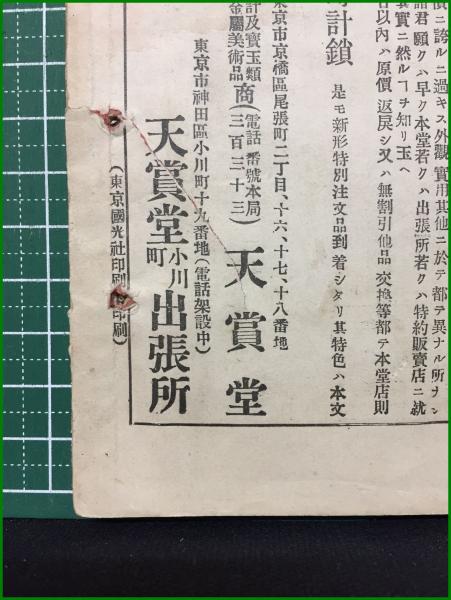 價ニ誇ルニ過キス外觀實用其他ニ於テ都テ異ナル所ナシ
諸君願クハ早ク本堂若クハ出張所若クハ特約販賣店ニ就
其實ニ然ルヿヲ知リ玉ヘ
以內ハ原價返戻シ又ハ無割引他品交換等都テ本堂店則
時計鎖
是モ新形特別注文品到着シタリ其特色ハ本文
東京市京橋區尾張町二丁目、十六、十七、十八番地
計及寶玉類
金屬美術品
商
(電話番號本局)
(三百三十三)
天賞堂
東京市神田區小川町十九番地(電話架設中)
天賞堂小川町出張所
(東京國光社印刷
印刷)